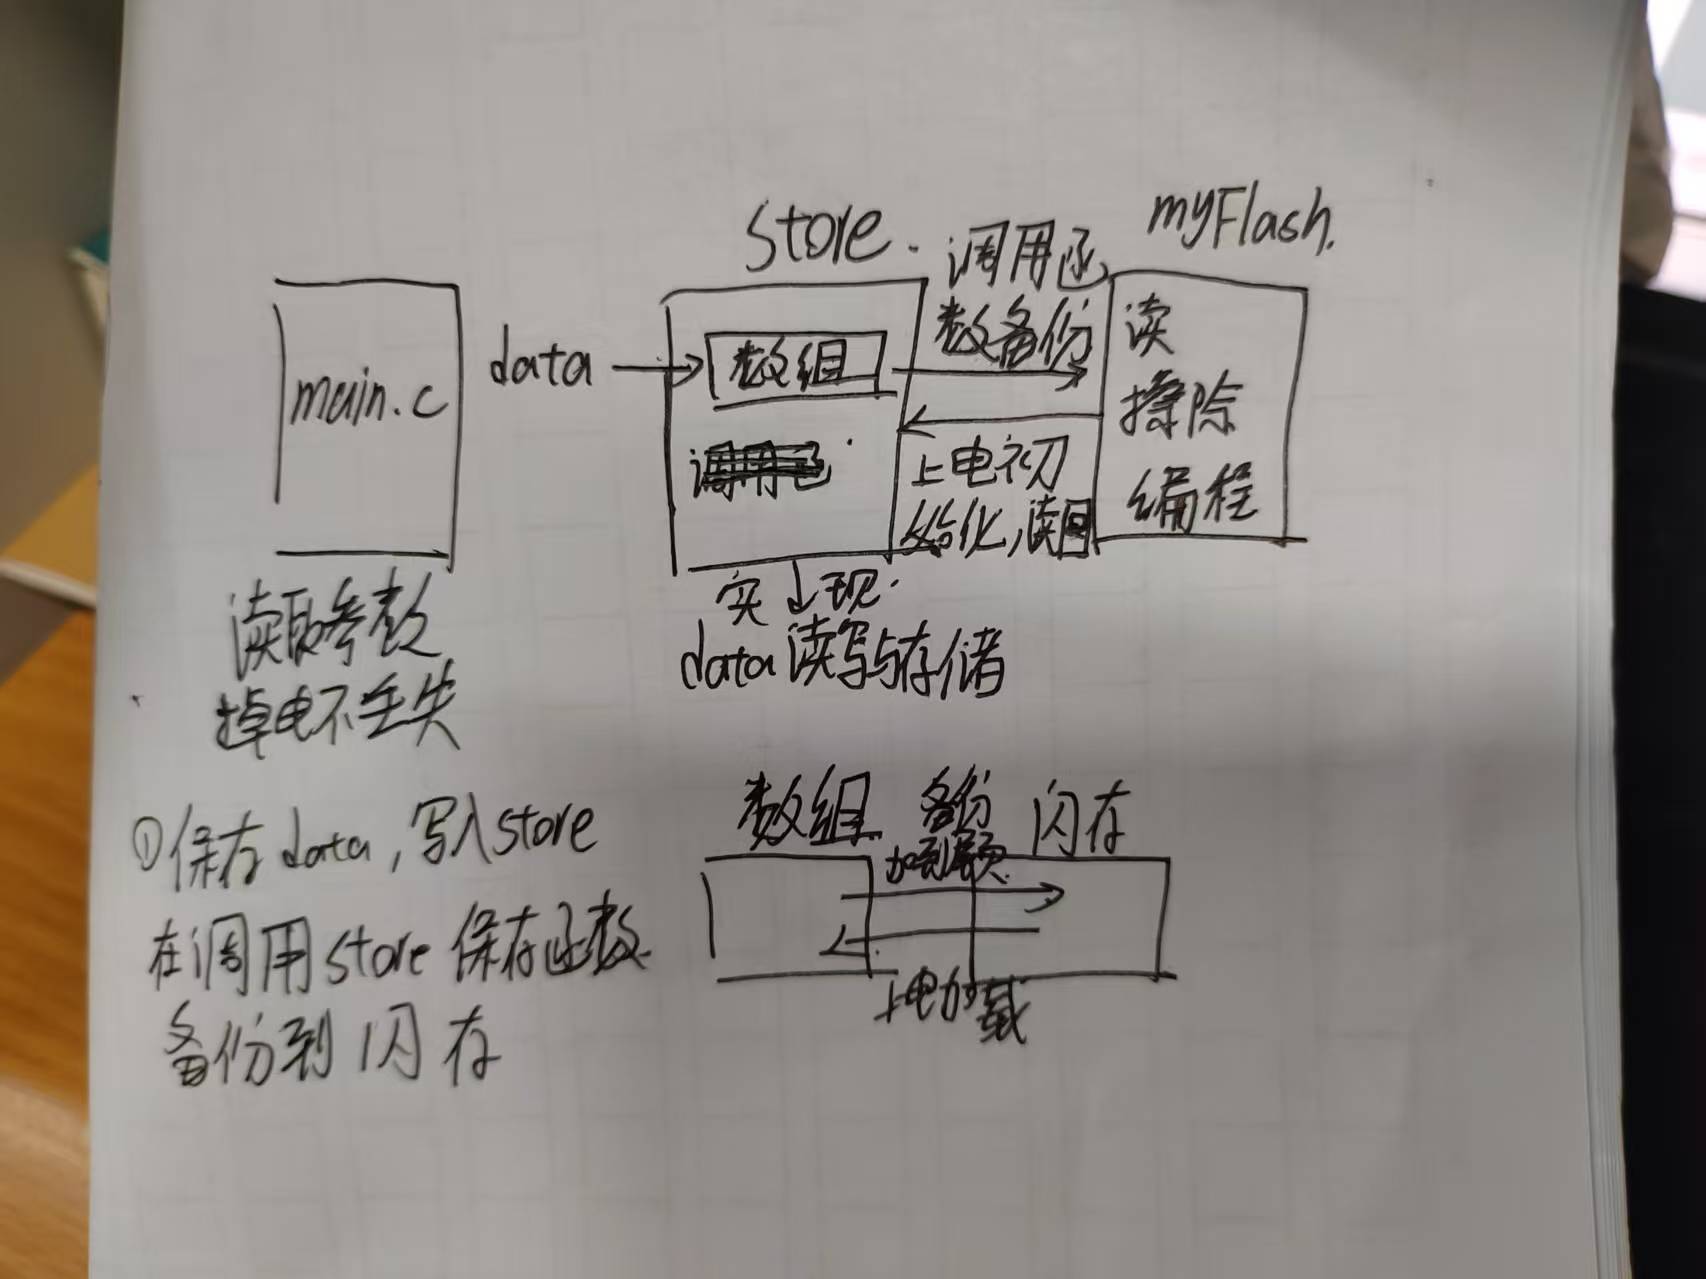 store.
myFlash.
调用函
数备份
main.c
data
数组
读
擦除
编程
上电初
始化,读回
实现.
data读写与存储
读取参数
掉电不丢失
①保存data,写入store
在调用store保存函数
备份到闪存
数组
备份
闪存
上电加载